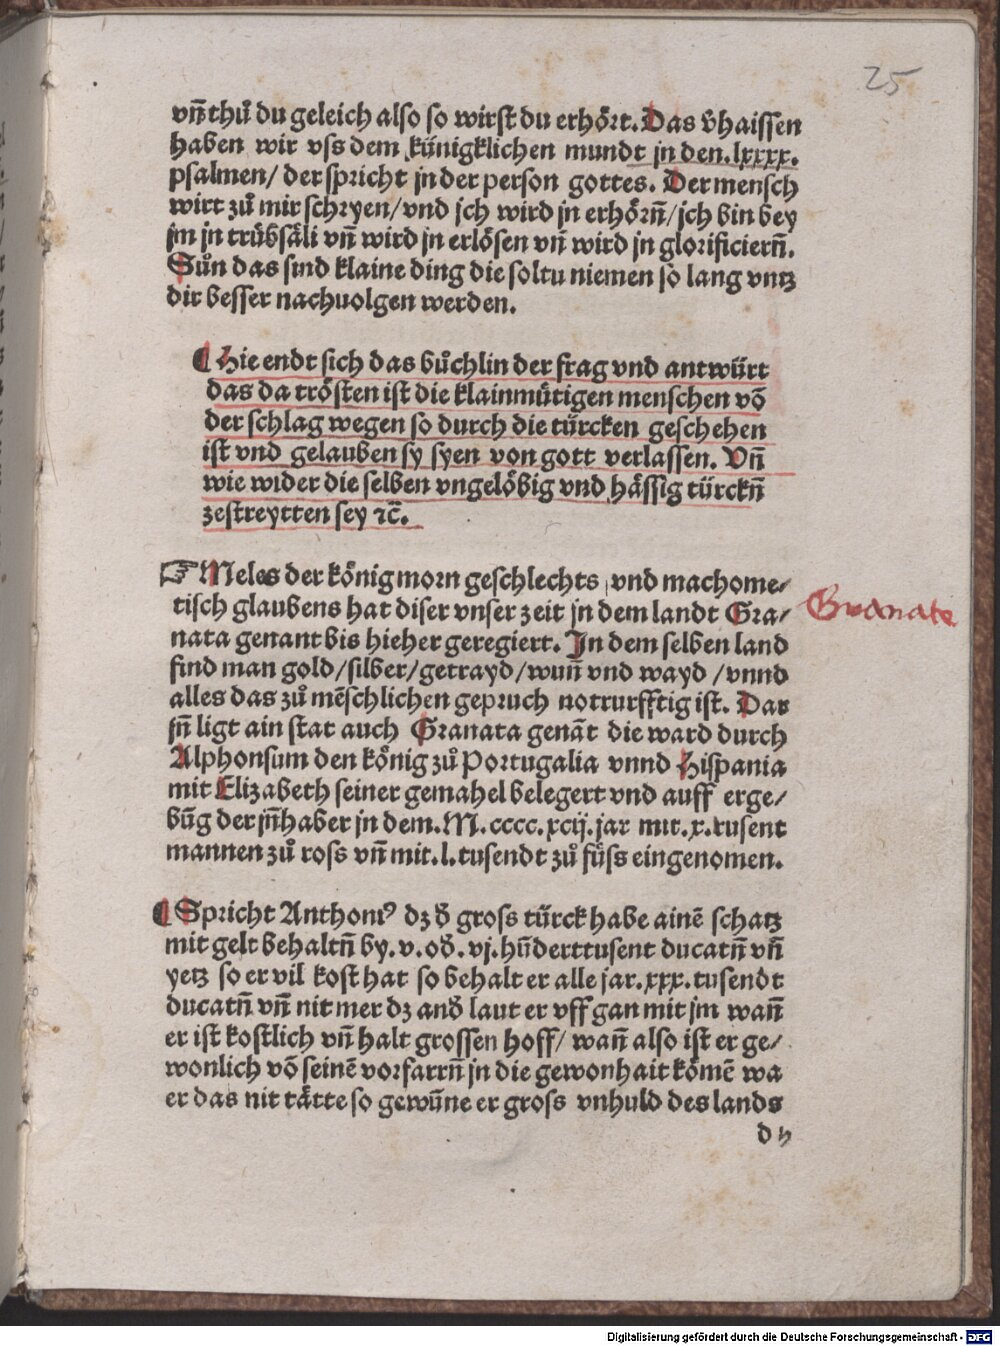 25
vñ thů du geleich also so wirst du erhört. Das v̄haissen
haben wir vss dem künigklichen mundt jn den .lxxxx.
psalmen/ der spricht jn der person gottes. Der mensch
wirt zů mir schryen/ vnd jch wird jn erhörñ/ jch bin bey
jm jn trübsäli vñ wird jn erlösen vñ wird jn glorificierñ.
Sůn das sind klaine ding die soltu niemen so lang vntz
dir besser nachuolgen werden.
¶ Hie endt sich das bůchlin der frag vnd antwürt
das da trösten ist die klainmütigen menschen vō
der schlag wegen so durch die türcken geschehen
ist vnd gelauben sy syen von gott verlassen. Vñ
wie wider die selben vngelöbig vnd hässig türckñ
zestreytten sey ⁊c̄.
☞ Meles der könig morn geschlechts vnd machome/
tisch glaubens hat diser vnser zeit jn dem landt Gra/
Granate
nata genant bis hieher geregiert. In dem selben land
find man gold/ silber/ getrayd/ wuñ vnd wayd / vnnd
alles das zů mēschlichen gepruch notturfftig ist. Dar
jñ ligt ain stat auch Granata genāt die ward durch
Alphonsum den könig zů Portugalia vnnd Hispania
mit Elizabeth seiner gemahel belegert vnd auff erge/
būg der jñhaber jn dem .M.cccc.xcij. jar mit .x. tusent
mannen zů ross vñ mit .l. tusendt zů füss eingenomen.
¶ Spricht Anthoniꝰ dz d̄ gross türck habe ainē schatz
mit gelt behaltñ by .v. od̄ .vj. hūderttusent ducatñ vñ
yetz so er vil kost hat so behalt er alle jar .xxx. tusendt
ducatñ vñ nit mer dz and̄ laut er vff gan mit jm wañ
er ist kostlich vñ halt grossen hoff/ wañ also ist er ge/
wonlich vō seinē vorfarrñ jn die gewonhait kōmē wa
er das nit tätte so gewūne er gross vnhuld des lands
Digitalisierung gefördert durch die Deutsche Forschungsgemeinschaft - DFG